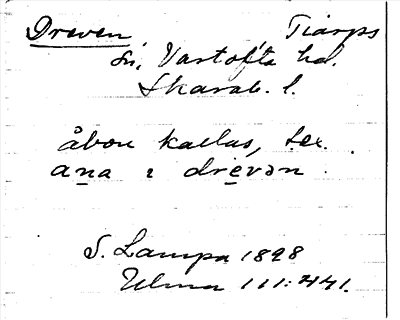 Dreven Tiarps
sn, Vartofta hd.
Skarab. l.
åbon kallas, t.ex.
ana i drevən
S. Lampa 1898
Ulma 111:441.